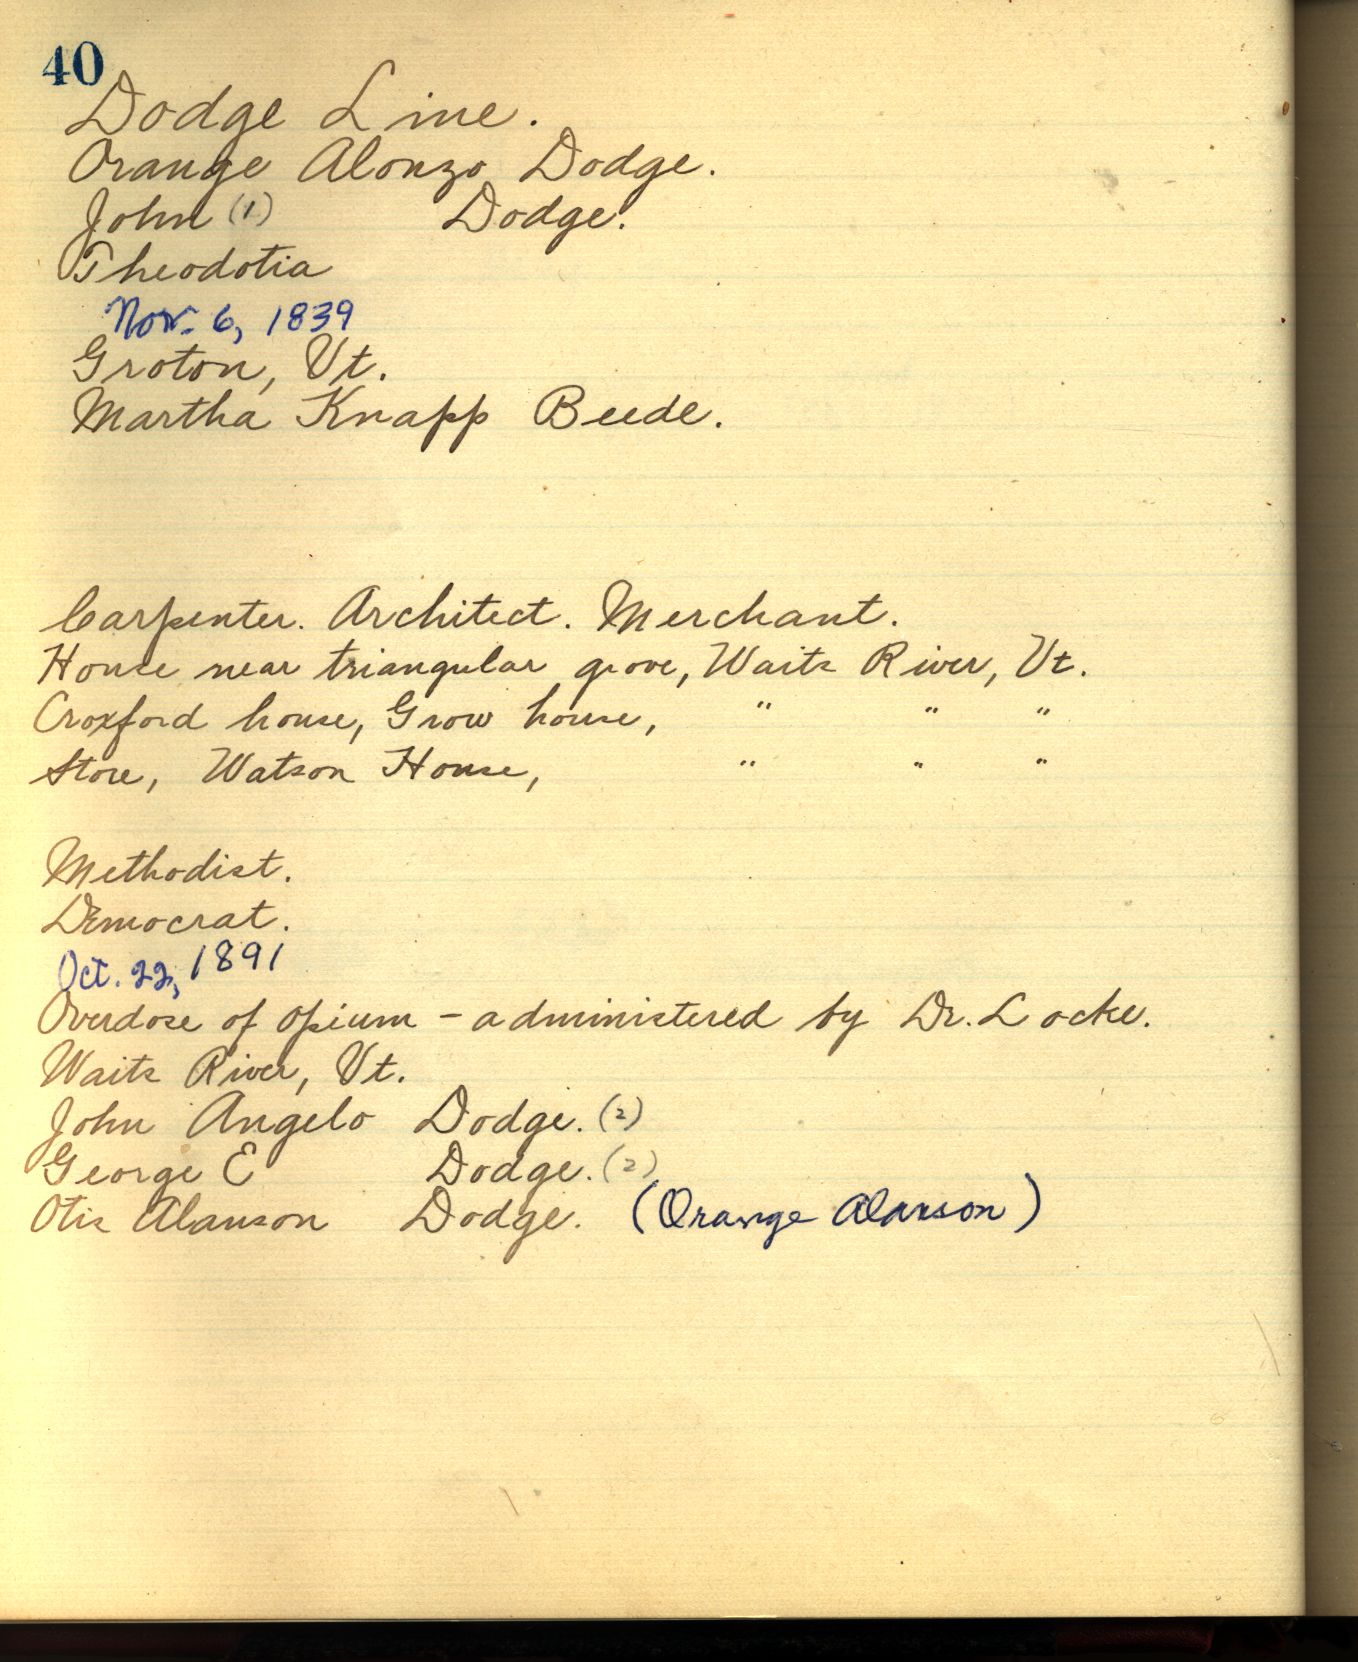 40
Dodge Line.
Orange Alonzo Dodge.
John (1) Dodge.
Theodotia
Nov. 6, 1839
Groton, Vt.
Martha Knapp Beede.
Carpenter. Architect. Merchant.
House near triangular grove, Waits River, Vt.
Croxford house, Grow house, " " "
Store, Watson House, " " "
Methodist.
Democrat.
Oct. 22, 1891
Overdose of opium - administered by Dr. Locke.
Waits River, Vt.
John Angelo Dodge. (2)
George E Dodge. (2)
Otis Alanson Dodge. (Orange Alanson)